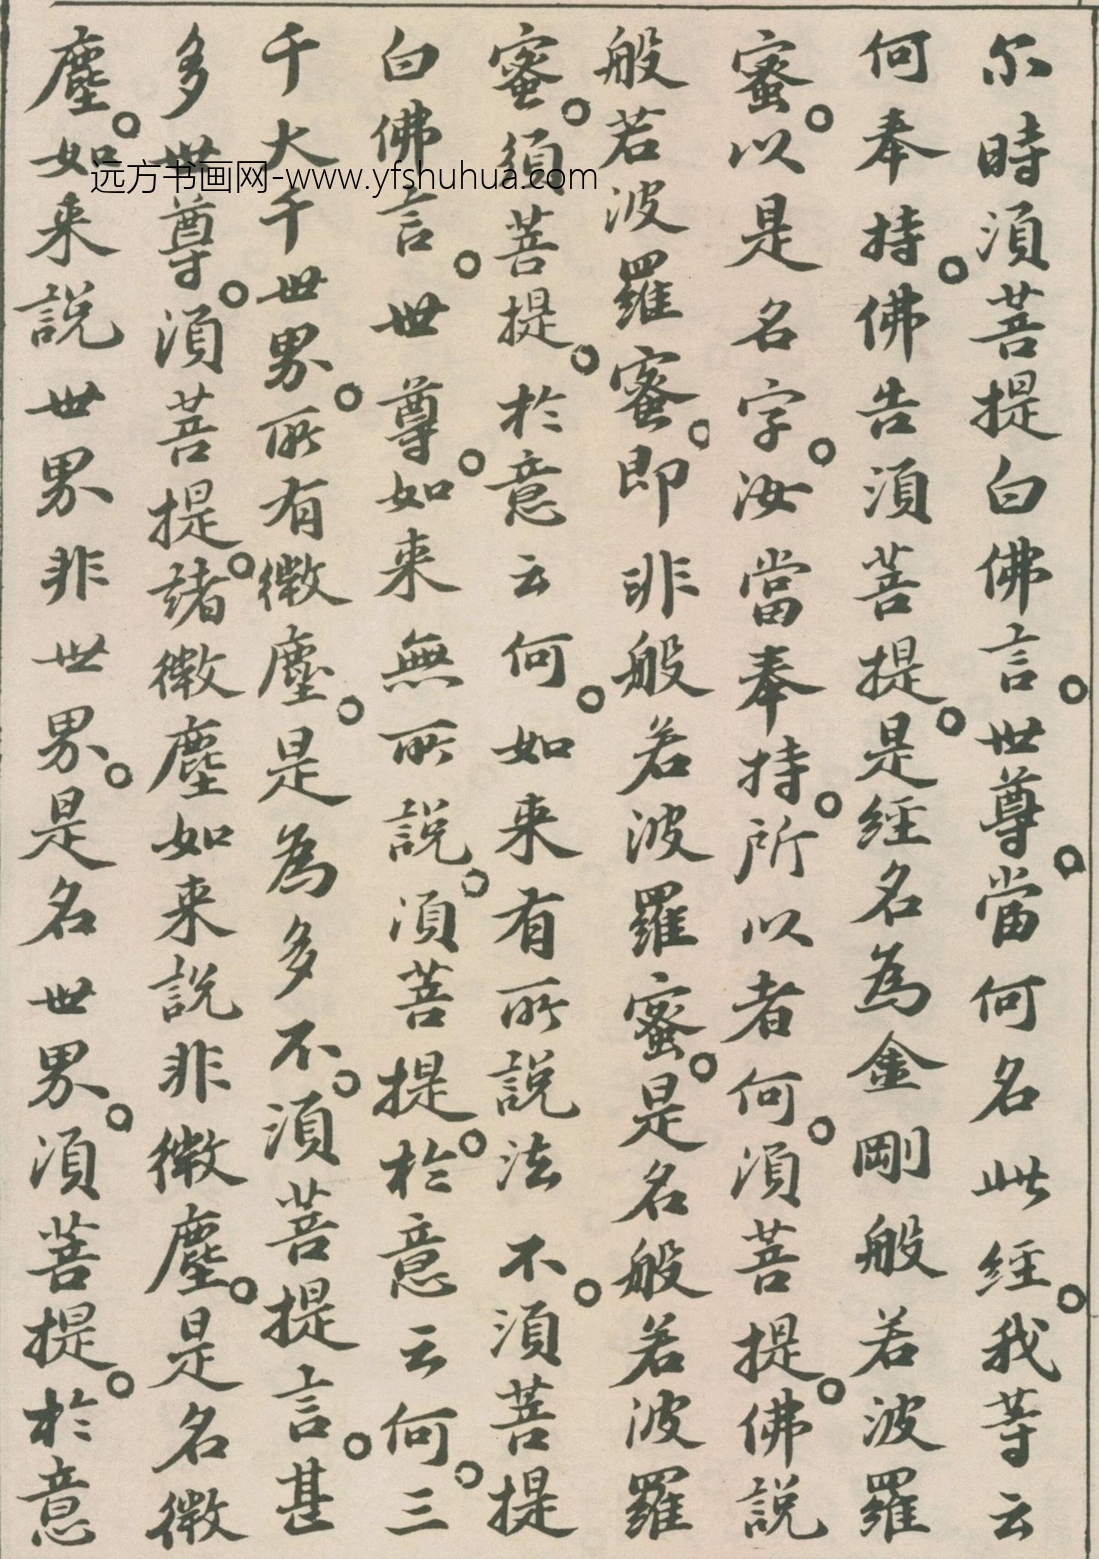 尔時須菩提白佛言。世尊。當何名此經。我等云
何奉持。佛告須菩提。是經名為金剛般若波羅
蜜。以是名字。汝當奉持。所以者何。須菩提。佛說
般若波羅蜜。即非般若波羅蜜。是名般若波羅
蜜。須菩提。於意云何。如来有所說法不。須菩提
白佛言。世尊。如来無所說。須菩提。於意云何。三
千大千世界。所有微塵。是為多不。須菩提言。甚
多世尊。須菩提。諸微塵如来說非微塵。是名微
塵。如来說世界非世界。是名世界。須菩提。於意
远方书画网-www.yfshuhua.com